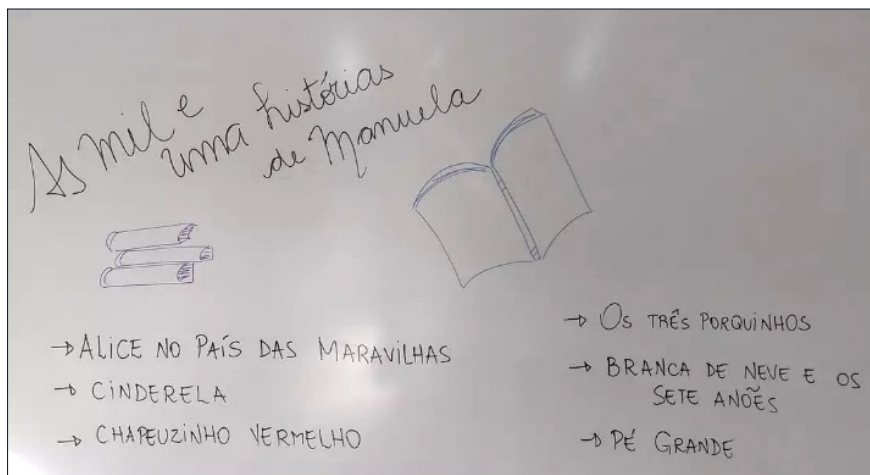 As mil e
uma histórias
de Manuela
→ ALICE NO PAÍS DAS MARAVILHAS
→ CINDERELA
→ CHAPEUZINHO VERMELHO
→ OS TRÊS PORQUINHOS
→ BRANCA DE NEVE E OS
SETE ANÕES
→ PÉ GRANDE